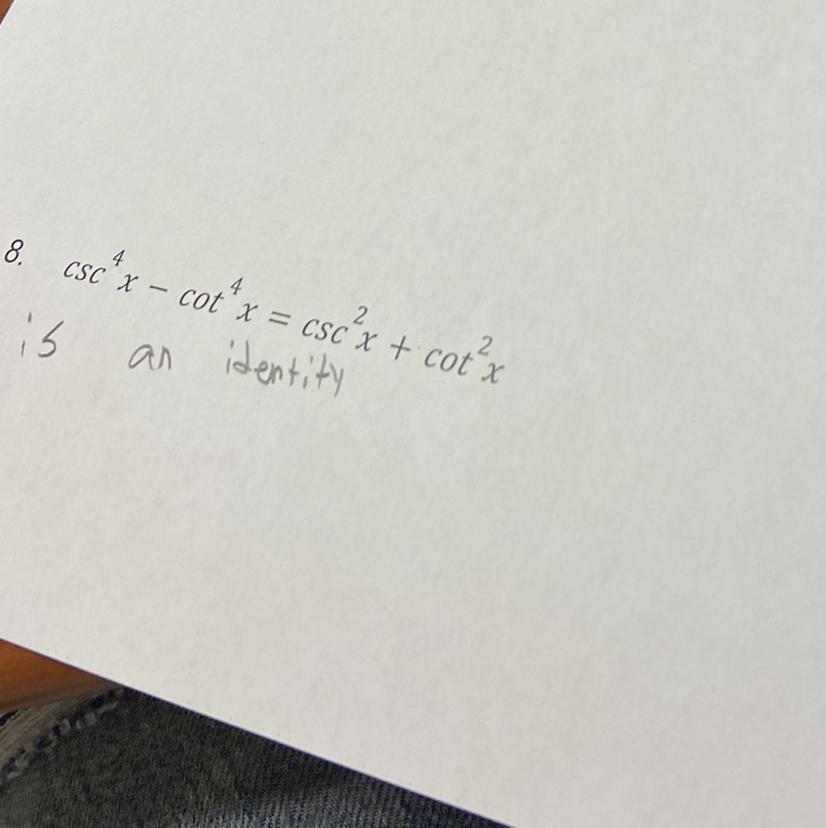 8. csc⁴x − cot⁴x = csc²x + cot²x
is an identity